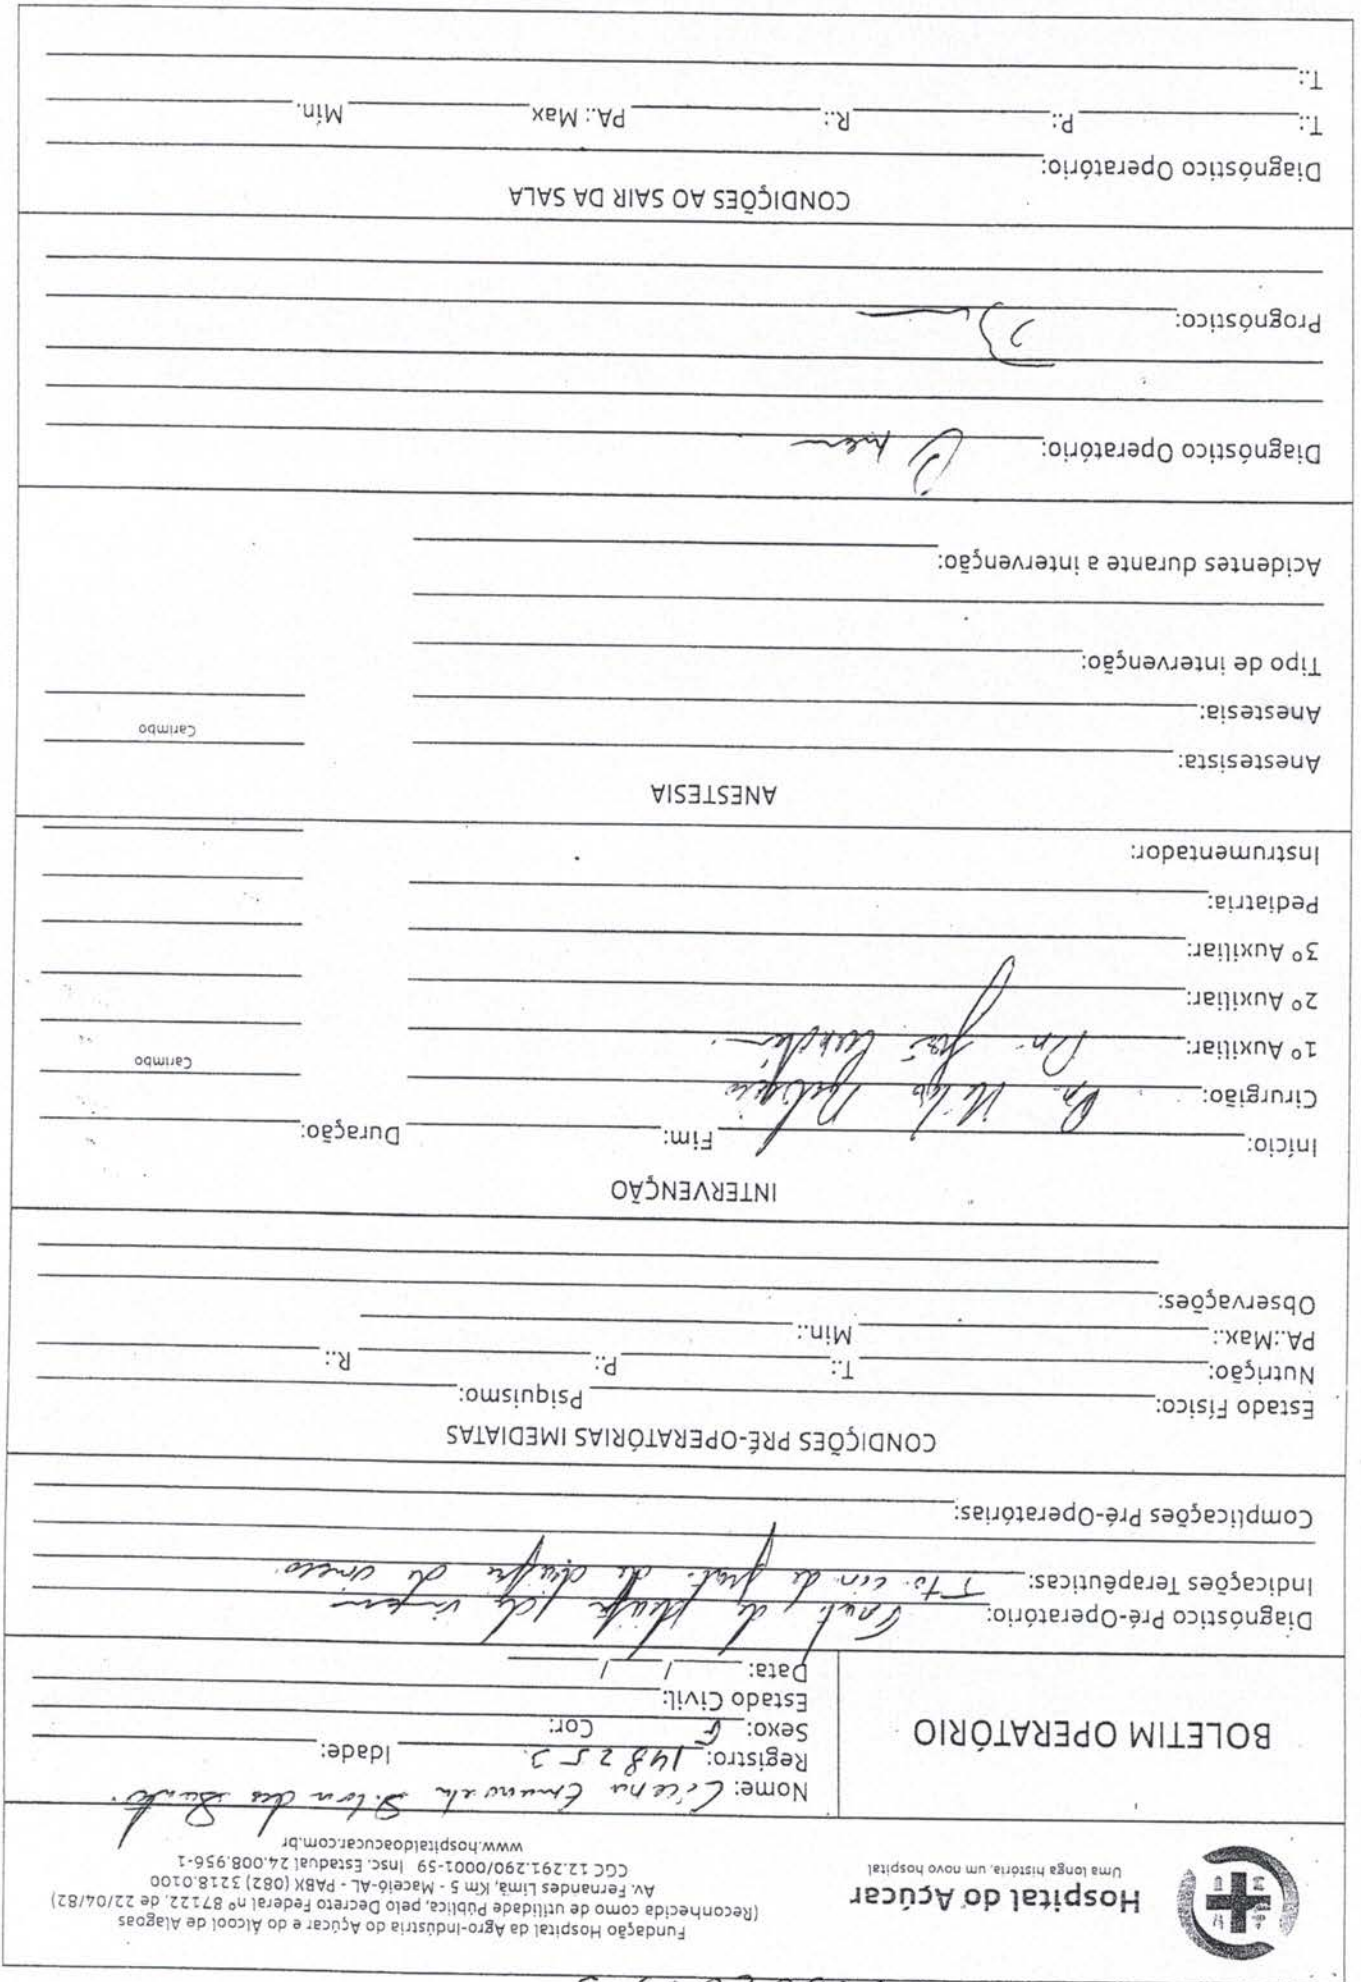 Hospital do Açúcar
Uma longa história, um novo hospital
Fundação Hospital da Agro-Indústria do Açúcar e do Álcool de Alagoas
(Reconhecida como de utilidade Pública, pelo Decreto Federal nº 87.122, de 22/04/82)
Av. Fernandes Lima, Km 5 - Maceió-AL - PABX (082) 3218.0100
CGC 12.291.290/0001-59 Insc. Estadual 24.008.956-1
www.hospitaldoacucar.com.br
BOLETIM OPERATÓRIO
Nome: Cicera Emanoela dos Santos
Registro: 148253 Idade:
Sexo: F Cor:
Estado Civil:
Data: / /
Diagnóstico Pré-Operatório: de
Indicações Terapêuticas: Tto cir. de de
Complicações Pré-Operatórias:
CONDIÇÕES PRÉ-OPERATÓRIAS IMEDIATAS
Estado Físico: Psiquismo:
Nutrição: T.: P.: R.:
PA.:Max.: Min.:
Observações:
INTERVENÇÃO
Início: Fim: Duração:
Cirurgião: Dr.
Carimbo
1º Auxiliar: Dr. José
2º Auxiliar:
3º Auxiliar:
Pediatria:
Instrumentador:
ANESTESIA
Anestesista:
Carimbo
Anestesia:
Tipo de intervenção:
Acidentes durante a intervenção:
Diagnóstico Operatório:
Prognóstico:
CONDIÇÕES AO SAIR DA SALA
Diagnóstico Operatório:
T.: P.: R.: PA.: Max Mín.
T.: